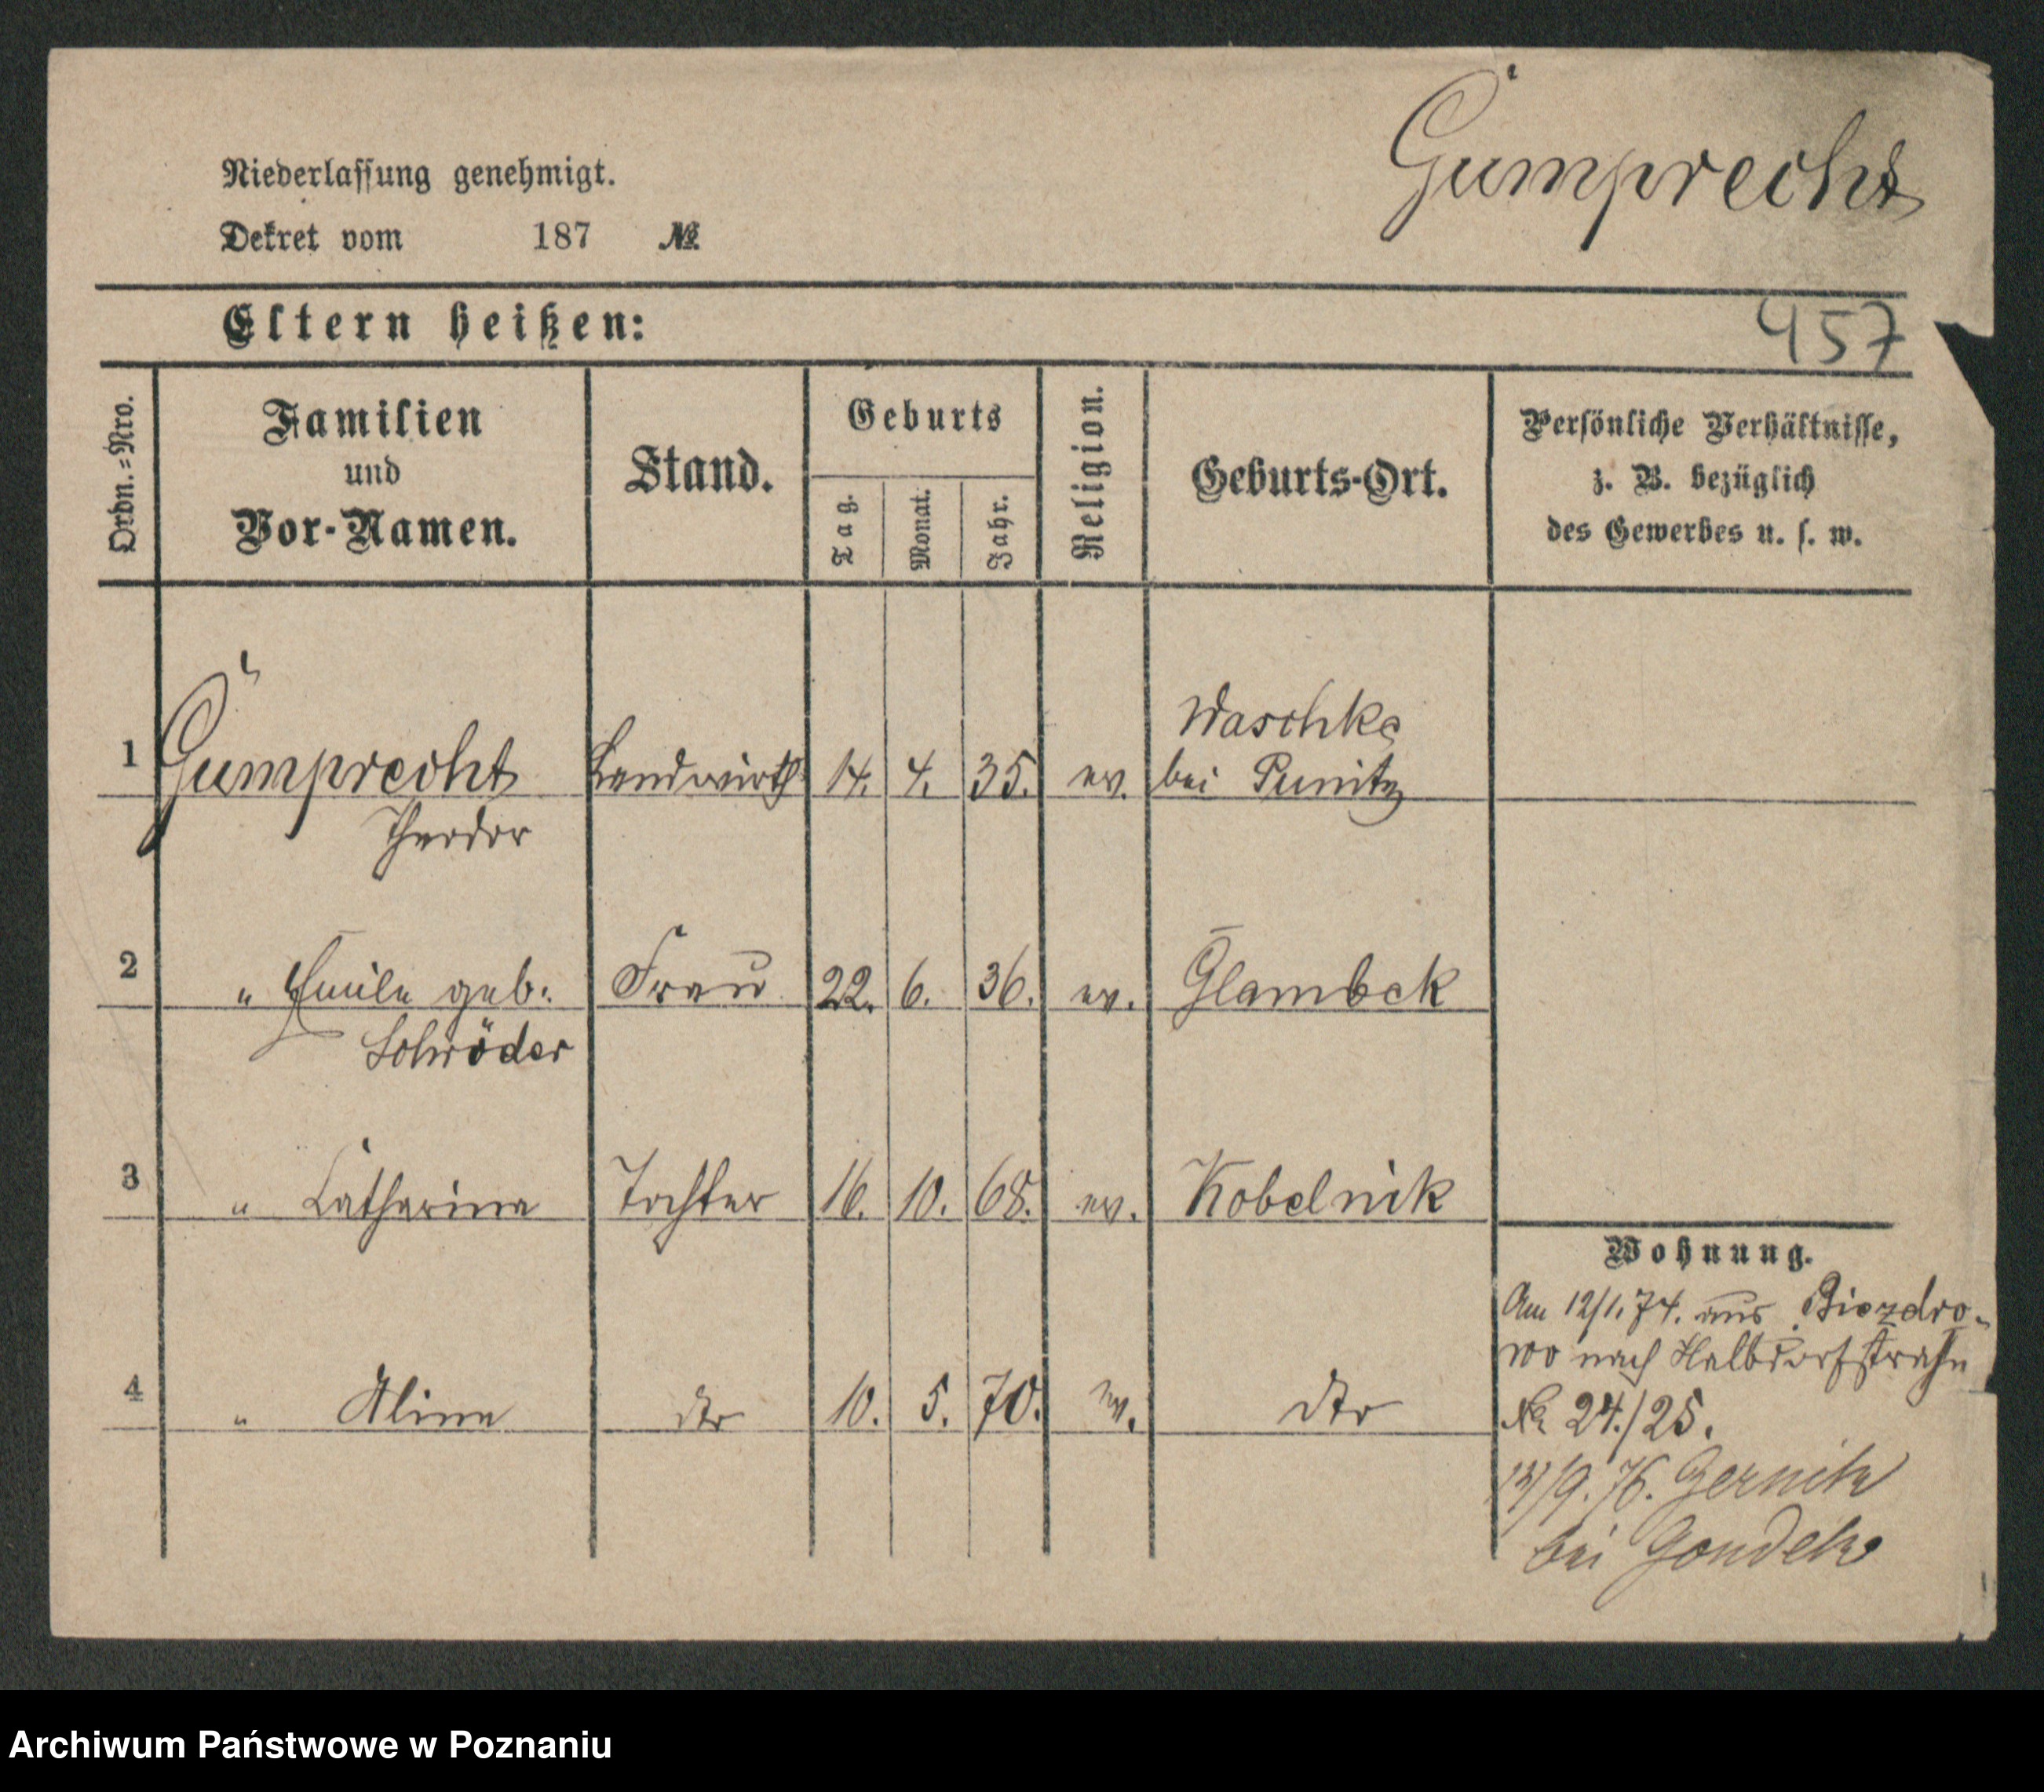 Gumprecht
Niederlassung genehmigt.
Dekret vom 187 №
Eltern heißen:
457
Ordn.=Nro.
Familien
und
Vor-Namen.
Stand.
Geburts
Tag.
Monat.
Jahr.
Religion.
Geburts-Ort.
Persönliche Verhältnisse,
z. B. bezüglich
des Gewerbes u. s. w.
Waschke
1 Gumprecht Landwirth 14. 4. 35. ev. bei Punitz
Theodor
2 " Emilie geb. Frau 22. 6. 36. ev. Glambek
Schröder
3 " Catharina Tochter 16. 10. 68. ev. Kobelnik
Wohnung.
Am 12/1. 74. aus Biezdro-
wo nach Halbdorfstraße
4 " Aline dto 10. 5. 70. ev. dto
№ 24./25.
/9. 76.
bei Gondek
Archiwum Państwowe w Poznaniu